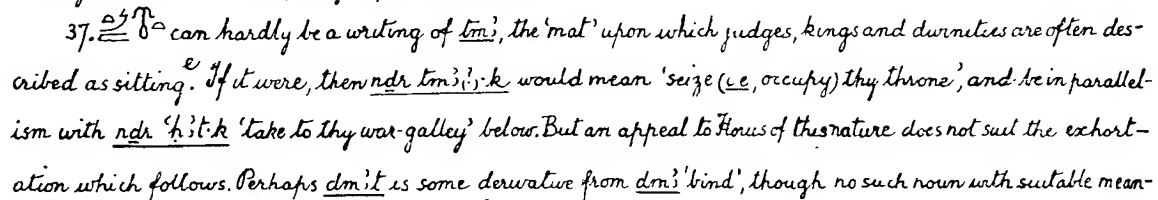 37. can hardly be a writing of tmꜣ, the 'mat' upon which judges, kings and divinities are often des-
cribed as sitting.e If it were, then ndr tmꜣ,ꜣ,·k would mean 'seize (i.e, occupy) thy throne', and be in parallel-
ism with ndr ꜥḥꜣt·k 'take to thy war-galley' below. But an appeal to Horus of this nature does not suit the exhort-
ation which follows. Perhaps dmꜣt is some derivative from dmꜣ 'bind', though no such noun with suitable mean-